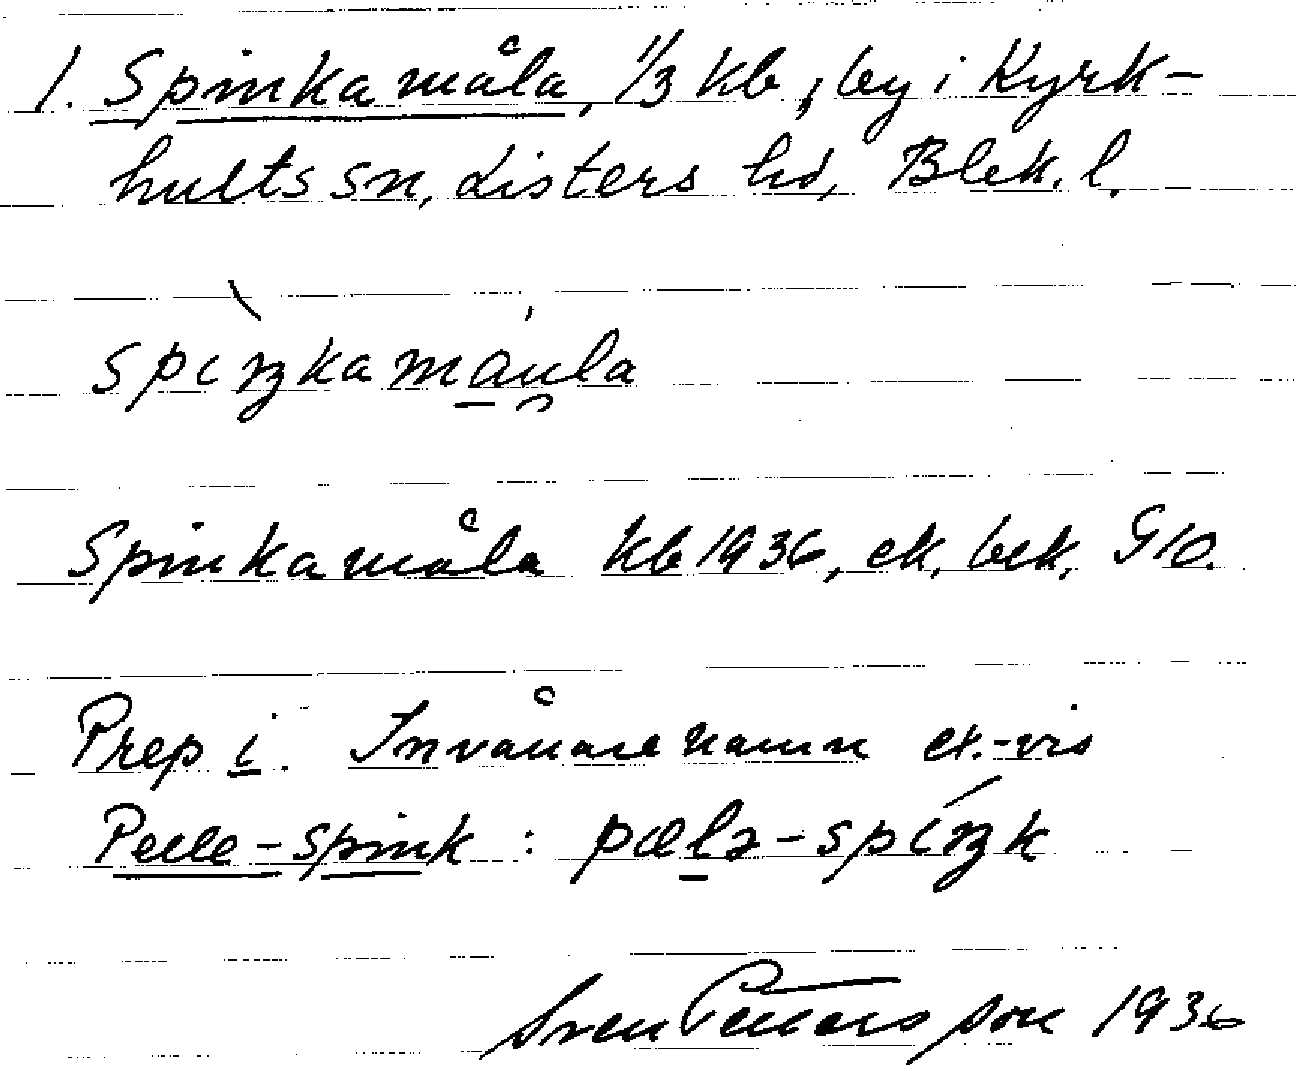 1. Spinkamåla, 1/3 kb, by i Kyrk-
hults sn, Listers hd, Blek. l.
spiŋkamau̯la
Spinkamåla kb 1936, ek. bek. G10.
Prep i. Invånarenamn ex.-vis
Pelle-spink : pælə-spíŋk
Sven Pettersson 1936